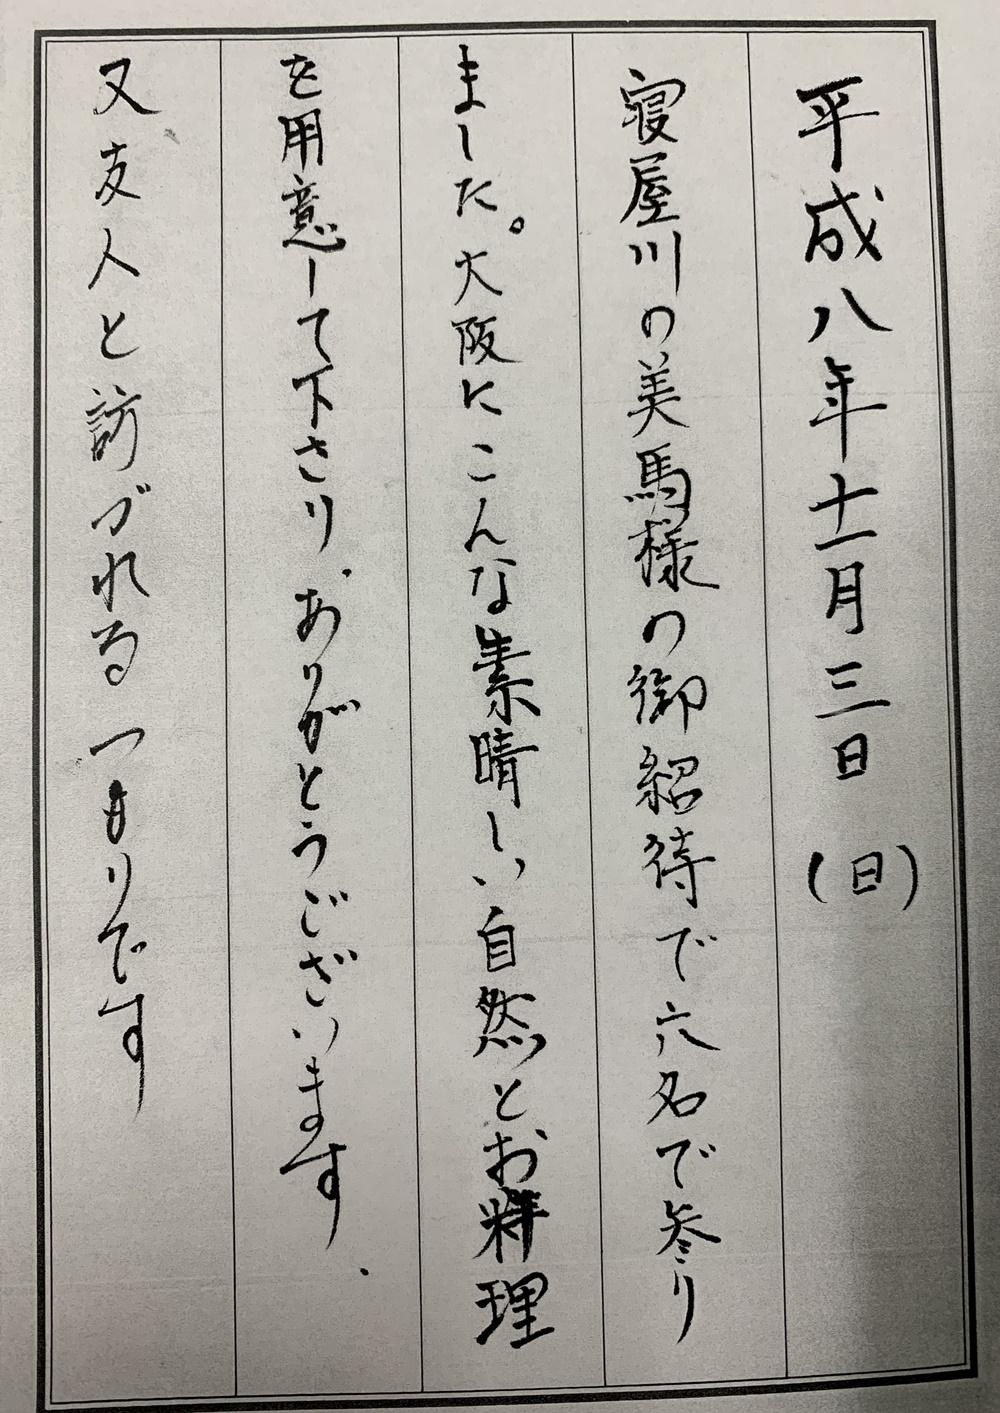 平成八年十一月三日（日）
寝屋川の美馬様の御紹待で六名で参り
ました。大阪にこんな素晴しい自然とお料理
を用意して下さり、ありがとうございます.
又友人と訪づれるつもりです